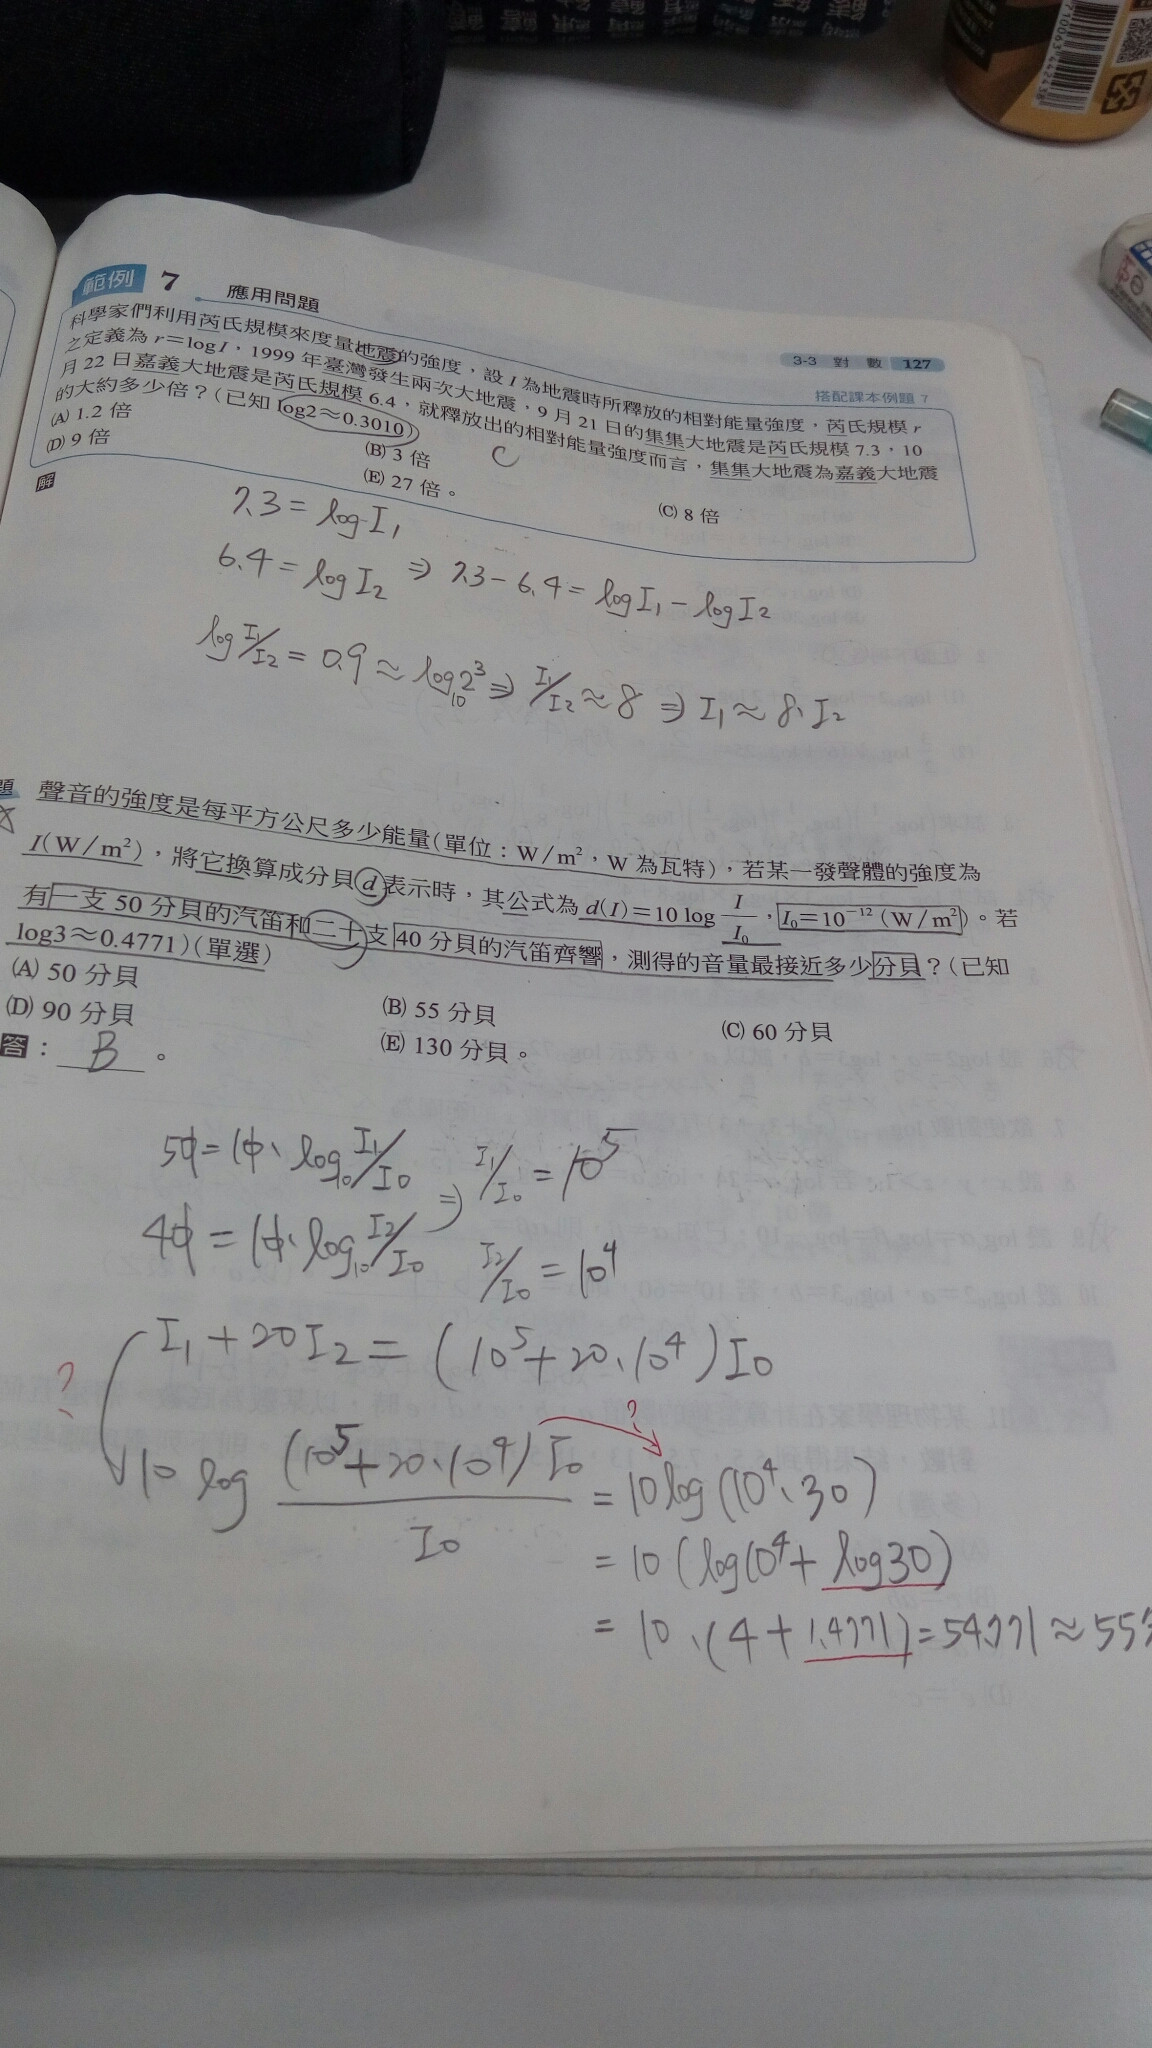 範例 7 應用問題
3-3 對數 127
搭配課本例題 7
科學家們利用芮氏規模來度量地震的強度，設 I 為地震時所釋放的相對能量強度，芮氏規模 r
之定義為 r＝logI，1999 年臺灣發生兩次大地震，9 月 21 日的集集大地震是芮氏規模 7.3，10
月 22 日嘉義大地震是芮氏規模 6.4，就釋放出的相對能量強度而言，集集大地震為嘉義大地震
的大約多少倍？(已知 log2≈0.3010)
C
(A) 1.2 倍
(B) 3 倍
(C) 8 倍
(D) 9 倍
(E) 27 倍。
解
7.3 = log I₁
6.4 = log I₂ ⇒ 7.3 - 6.4 = log I₁ - log I₂
log I₁/I₂ = 0.9 ≈ log₁₀2³ ⇒ I₁/I₂ ≈ 8 ⇒ I₁ ≈ 8·I₂
題 聲音的強度是每平方公尺多少能量(單位：W/m²，W 為瓦特)，若某一發聲體的強度為
I(W/m²)，將它換算成分貝 d 表示時，其公式為 d(I)＝10 log I/I₀，I₀＝10⁻¹² (W/m²)。若
有一支 50 分貝的汽笛和二十支 40 分貝的汽笛齊響，測得的音量最接近多少分貝？(已知
log3≈0.4771)(單選)
(A) 50 分貝
(B) 55 分貝
(C) 60 分貝
(D) 90 分貝
(E) 130 分貝。
答：B。
50 = 10·log₁₀ I₁/I₀ ⇒ I₁/I₀ = 10⁵
40 = 10·log₁₀ I₂/I₀ I₂/I₀ = 10⁴
I₁ + 20I₂ = (10⁵ + 20·10⁴) I₀
?
?
10 log (10⁵ + 20·10⁴) I₀ / I₀ = 10 log (10⁴·30)
= 10 (log 10⁴ + log 30)
= 10·(4 + 1.4771) = 54.771 ≈ 55